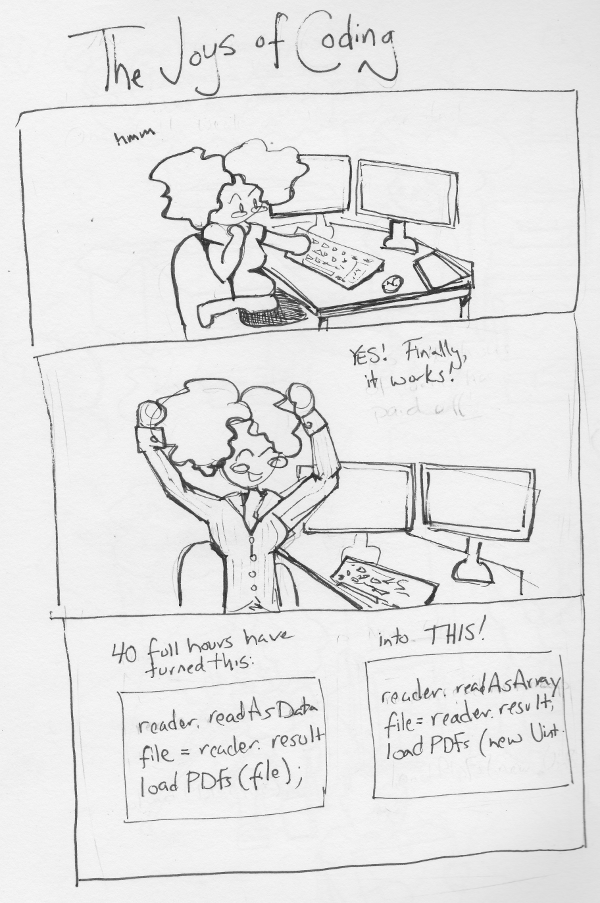 The Joys of Coding
hmm
YES! Finally,
it works!
40 full hours have
turned this:
reader. readAsData
file = reader. result
load PDFs (file);
into THIS!
reader. readAsArray
file = reader. result;
load PDFs (new Uint